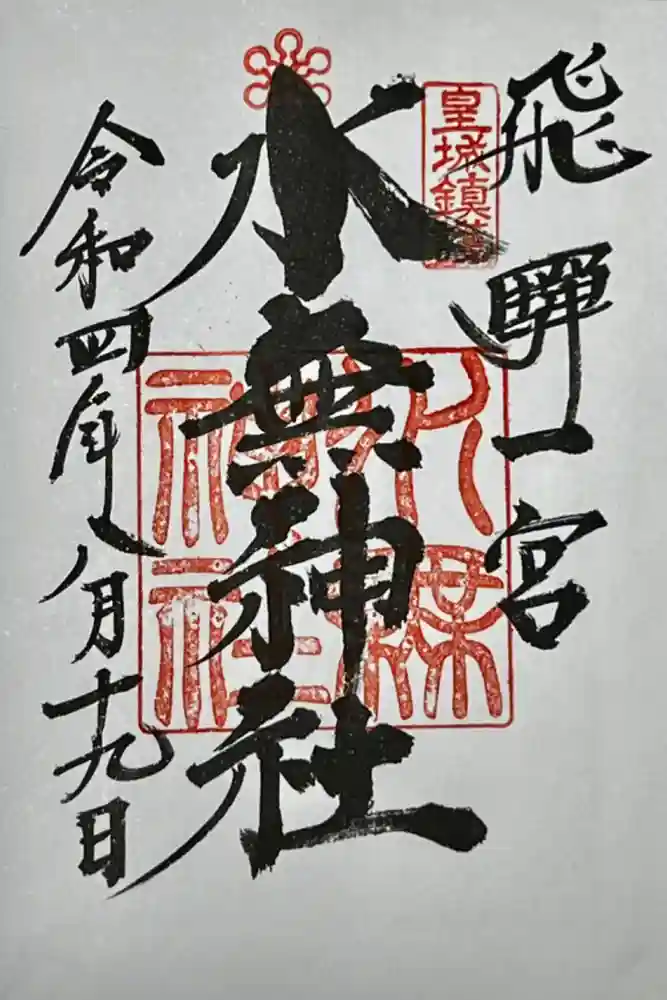 飛騨一宮
皇城鎮
水無神社
令和四年八月十九日